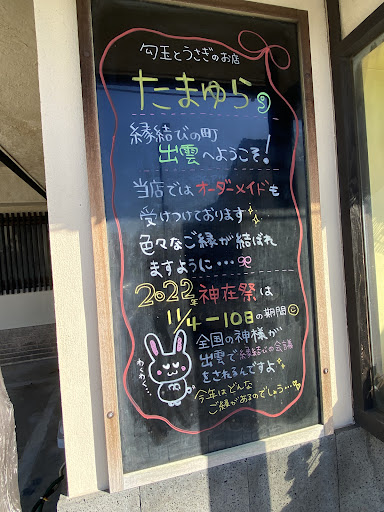 勾玉とうさぎのお店
たまゆら
縁結びの町
出雲へようこそ!
当店ではオーダーメイドも
受けつけております
色々なご縁が結ばれ
ますように…
2022年神在祭は
11/4-10日の期間
全国の神様が
出雲で縁結びの会議
をされるんですよ
今年はどんな
ご縁があるのでしょう…
わくわく…